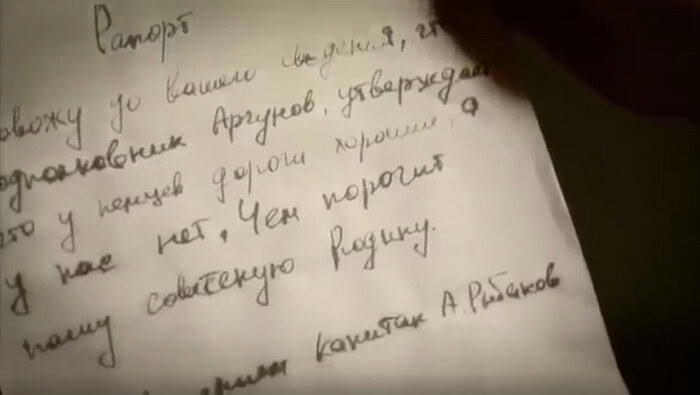 Рапорт
овожу до вашего сведения, что
одполковник Аргунов, утверждает
что у немцев дороги хорошие, а
у нас нет. Чем порочит
нашу советскую Родину.
капитан А. Рыбаков